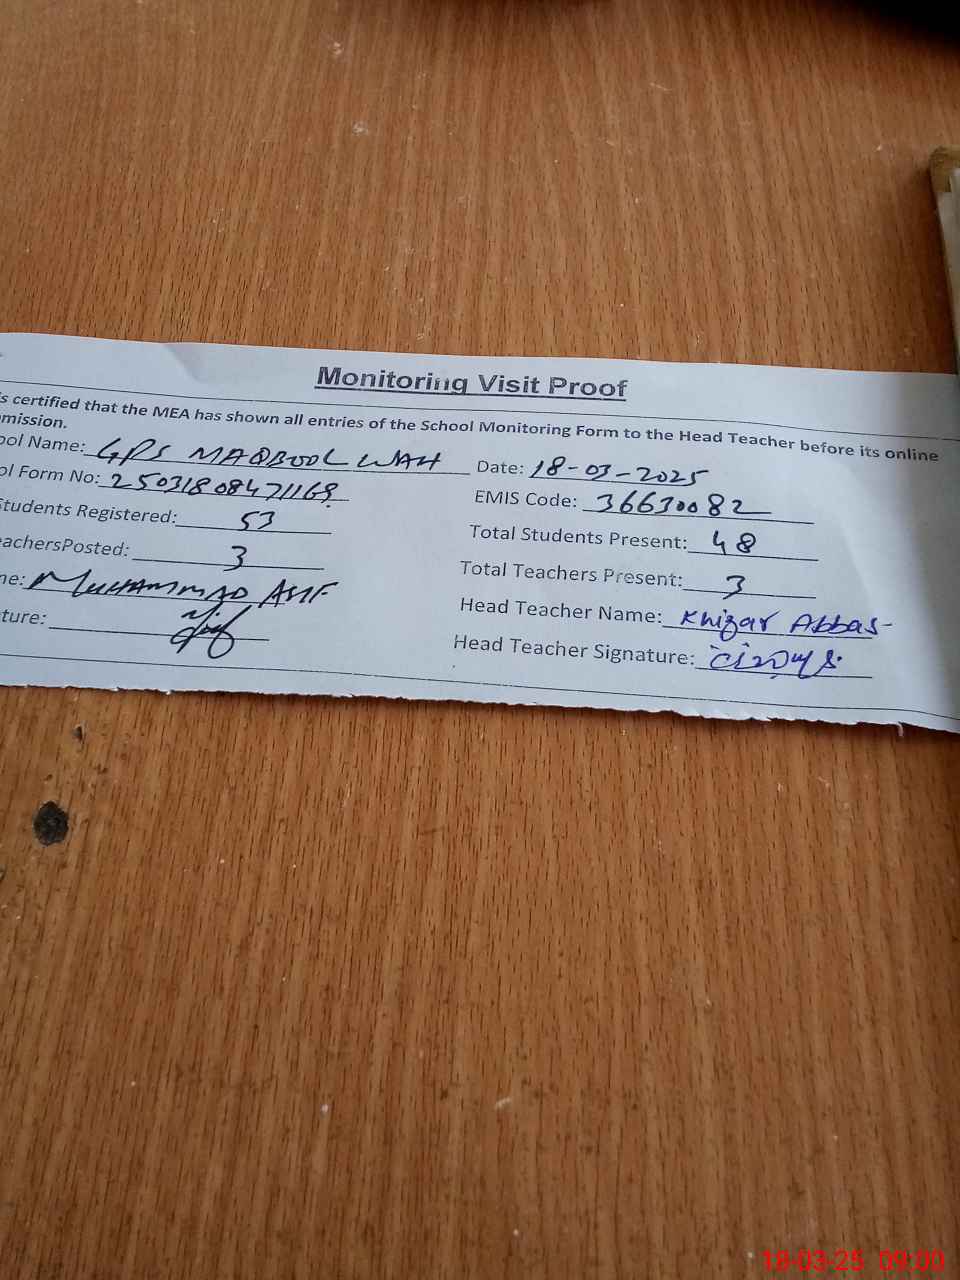 Monitoring Visit Proof
s certified that the MEA has shown all entries of the School Monitoring Form to the Head Teacher before its online
mission.
ool Name: GPS MAQBOOL WAH Date: 18-03-2025
ol Form No: 25031808471169 EMIS Code: 36630082
Students Registered: 53 Total Students Present: 48
eachersPosted: 3 Total Teachers Present: 3
ne: MUHAMMAD ASIF Head Teacher Name: Khizar Abbas
ture: Head Teacher Signature:
18-03-25 09:00